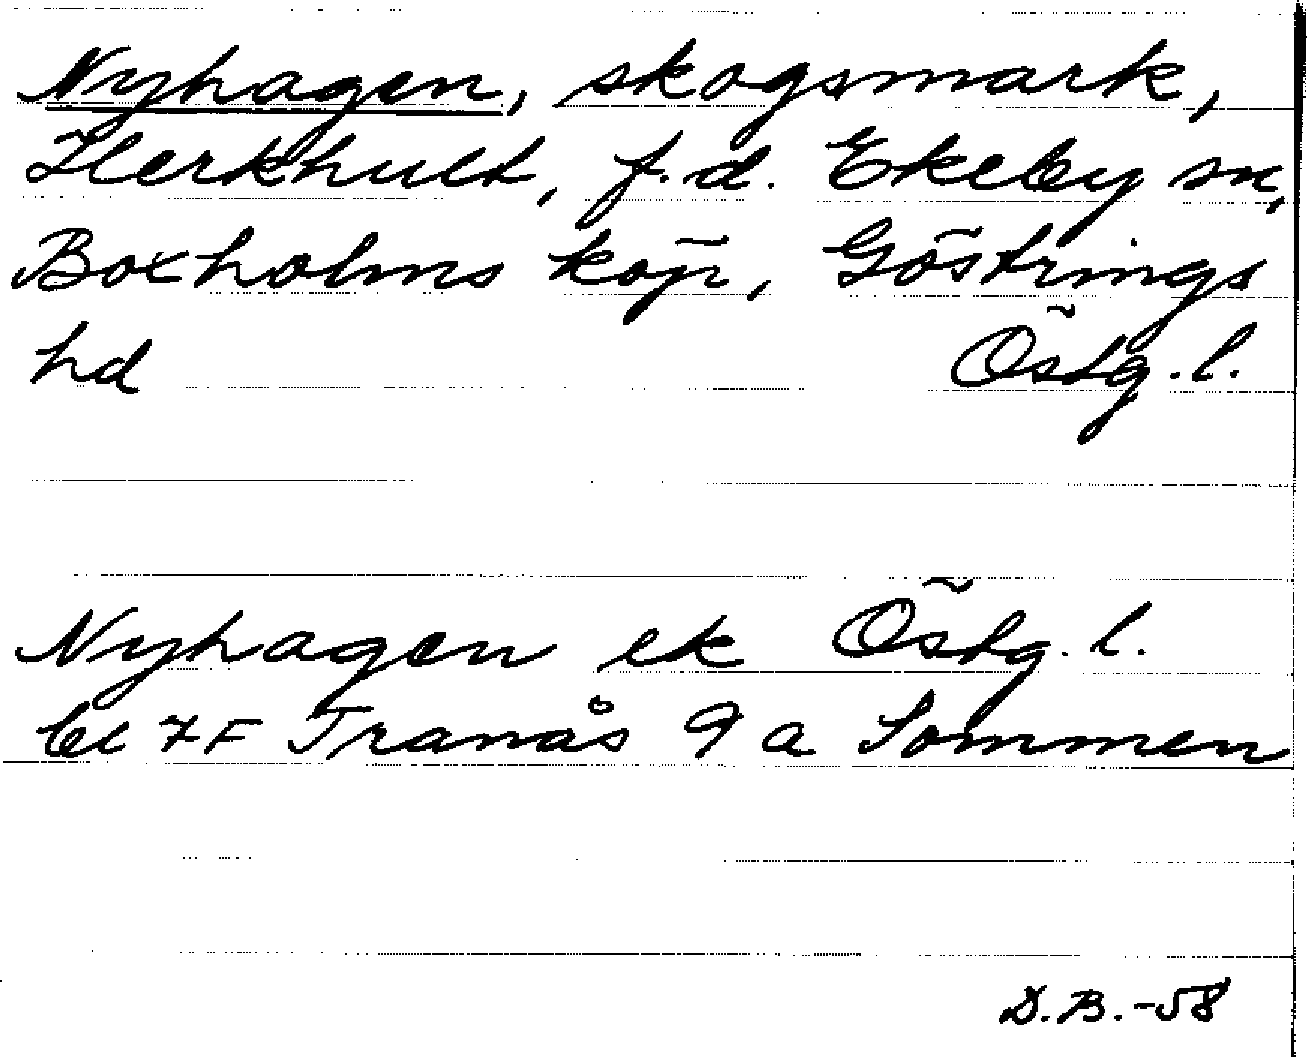 Nyhagen, skogsmark,
Flerkhult, f.d. Ekeby sn,
Boxholms köp, Göstrings
hd Östg. l.
Nyhagen ek Östg. l.
bl 7F Tranås 9 a Sommen
D.B.-58